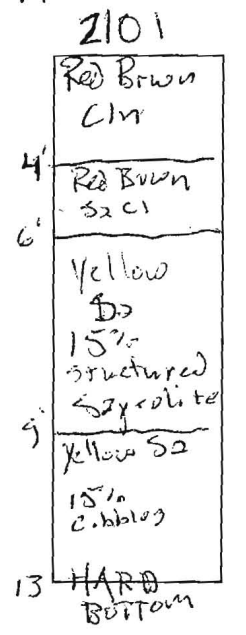 2101
Red Brown
Cln
4'
Red Brown
Sa Cl
6'
Yellow
Sa
15%
Structured
Saprolite
9'
Yellow Sa
15%
Cobbles
13 HARD
BOTTOM